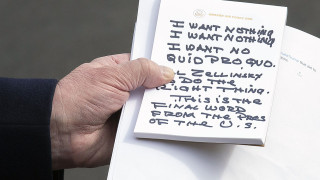 I WANT NOTHING
I WANT NOTHING
I WANT NO
QUID PRO QUO.
L ZELLINSKY
O DO THE
IGHT THING.
.THIS IS THE
FINAL WORD
FROM THE PRES
OF THE U.S.